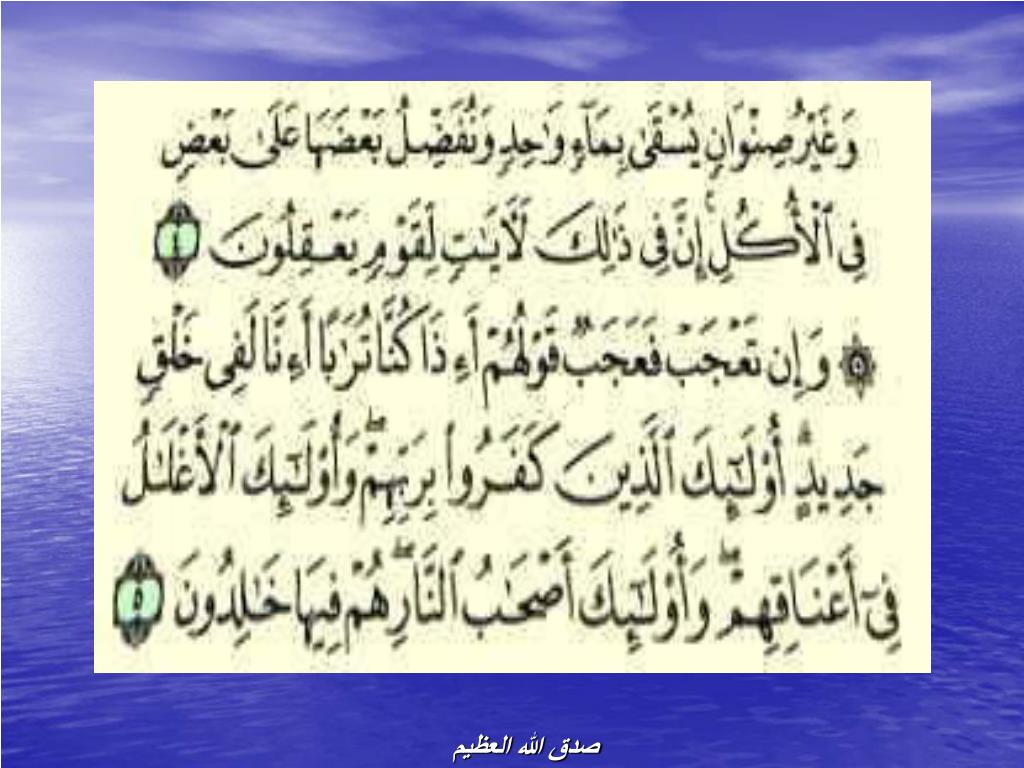 وَغَيْرُ صِنْوَانٍ يُسْقَىٰ بِمَآءٍ وَٰحِدٍ وَنُفَضِّلُ بَعْضَهَا عَلَىٰ بَعْضٍ
فِى ٱلْأُكُلِ ۚ إِنَّ فِى ذَٰلِكَ لَـَٔايَـٰتٍ لِّقَوْمٍ يَعْقِلُونَ ٤
۞ وَإِن تَعْجَبْ فَعَجَبٌ قَوْلُهُمْ أَءِذَا كُنَّا تُرَٰبًا أَءِنَّا لَفِى خَلْقٍ
جَدِيدٍ ۗ أُو۟لَـٰٓئِكَ ٱلَّذِينَ كَفَرُوا۟ بِرَبِّهِمْ ۖ وَأُو۟لَـٰٓئِكَ ٱلْأَغْلَـٰلُ
فِىٓ أَعْنَاقِهِمْ ۖ وَأُو۟لَـٰٓئِكَ أَصْحَـٰبُ ٱلنَّارِ ۖ هُمْ فِيهَا خَـٰلِدُونَ ٥
صدق الله العظيم